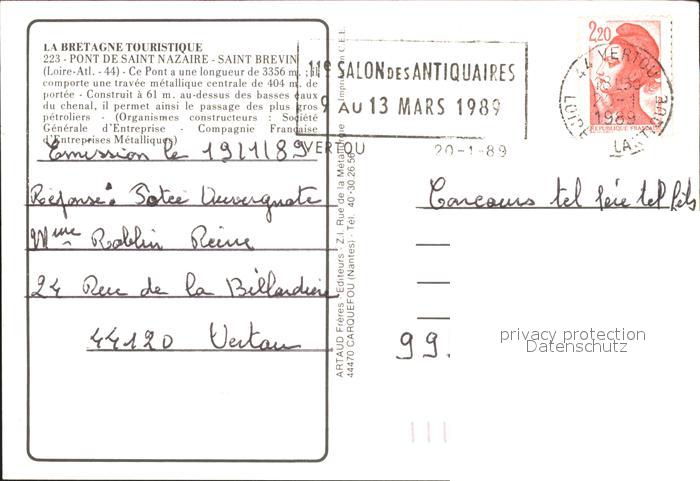 LA BRETAGNE TOURISTIQUE
223 - PONT DE SAINT NAZAIRE - SAINT BREVIN
(Loire-Atl. - 44) - Ce Pont a une longueur de 3356 m. ; il
comporte une travée métallique centrale de 404 m. de
portée - Construit à 61 m. au-dessus des basses eaux
du chenal, il permet ainsi le passage des plus gros
pétroliers - (Organismes constructeurs : Société
Générale d'Entreprise - Compagnie Française
d'Entreprises Métalliques)
Emission le 19/1/89
Réponse : Potée Auvergnate
Mme Roblin Reine
24 Rue de la Billardière
44120 Vertou
ARTAUD Frères - Editeurs - Z.I. Rue de la Métallurgie
44470 CARQUEFOU (Nantes) - Tél. 40-30.26.56
11e SALON DES ANTIQUAIRES
9 AU 13 MARS 1989
VERTOU 20-1-89
2,20
REPUBLIQUE FRANÇAISE
44 VERTOU
1989
LOIRE ATLANTIQUE
Concours tel père tel fils
99.
privacy protection
Datenschutz